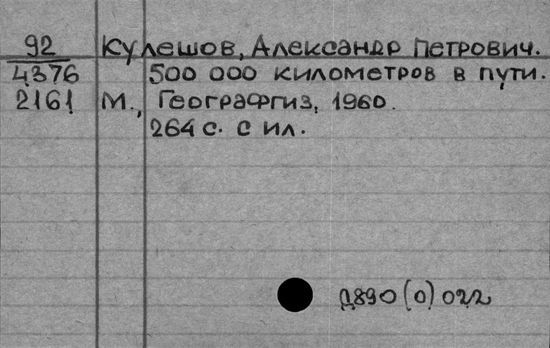 92 Кулешов, Александр Петрович.
4376 500 000 километров в пути.
2161 М., Географгиз, 1960.
264 с. с ил.
Д890(0)022